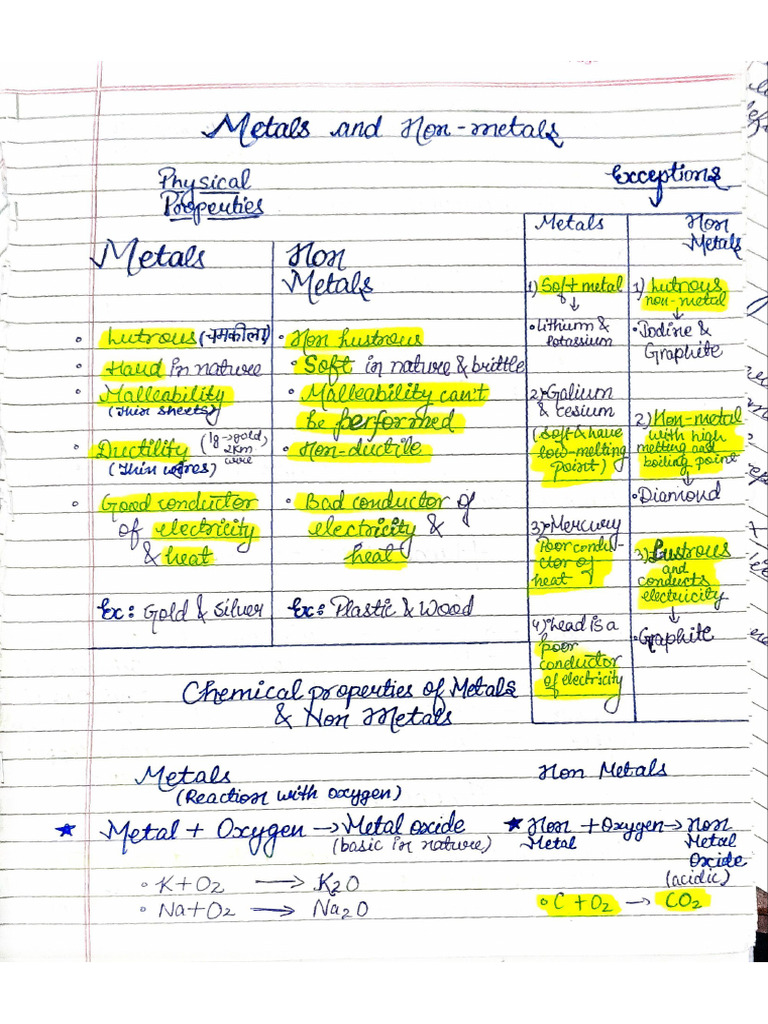 Metals and Non-metals
Physical
Properties
Metals
Non
Metals
• Lutrous (चमकीला)
• Non lustrous
• Hard in nature
• Soft in nature & brittle
• Malleability
(Thin sheets)
• Malleability can't
be performed
• Ductility (1g→gold,
2km
wire
(Thin wires)
• Non-ductile
• Good conductor
of electricity
& heat
• Bad conductor of
electricity &
heat
Ex: Gold & Silver
Ex: Plastic & Wood
Exceptions
Metals
Non
Metals
1) Soft metal
↓
• Lithium &
Potassium
2) Galium
& cesium
(Soft & have
low-melting
point)
3) Mercury
Poor condu-
ctor of
heat
4) Lead is a
poor
conductor
of electricity
1) Lutrous
non-metal
↓
• Iodine &
Graphite
2) Non-metal
with high
melting and
boiling point
↓
• Diamond
3) Lustrous
and
conducts
electricity
↓
• Graphite
Chemical properties of Metals
& Non Metals
Metals
(Reaction with oxygen)
★ Metal + Oxygen → Metal oxide
(basic in nature)
• K+O2 → K2O
• Na+O2 → Na2O
Non Metals
★ Non + Oxygen → Non
Metal Metal
Oxide
(acidic)
• C + O2 → CO2